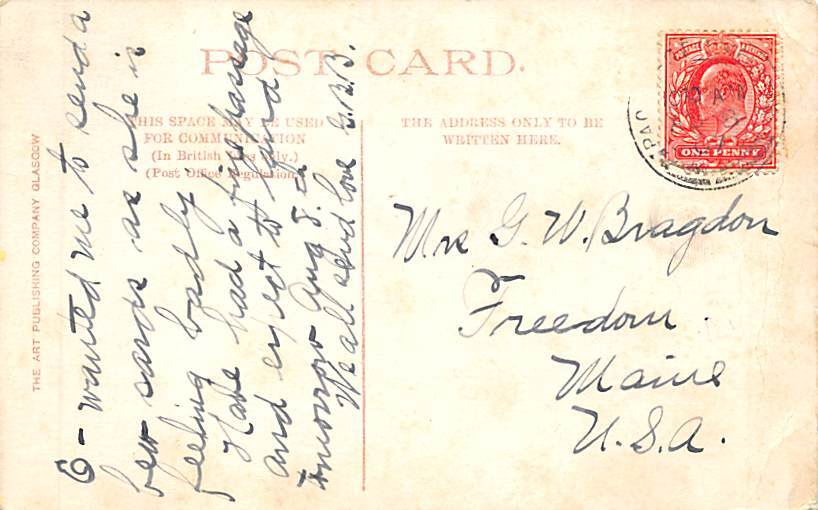 POST CARD.
THIS SPACE MAY BE USED
FOR COMMUNICATION
(In British Isles Only.)
(Post Office Regulation.)
THE ADDRESS ONLY TO BE
WRITTEN HERE.
THE ART PUBLISHING COMPANY GLASGOW
POSTAGE REVENUE
ONE PENNY
- wanted me to send a
few cards as she is
feeling badly
Have had a fine passage
and expect to land
tomorrow Aug 8.
We all send love
Mrs G. W. Bragdon
Freedom.
Maine
U.S.A.